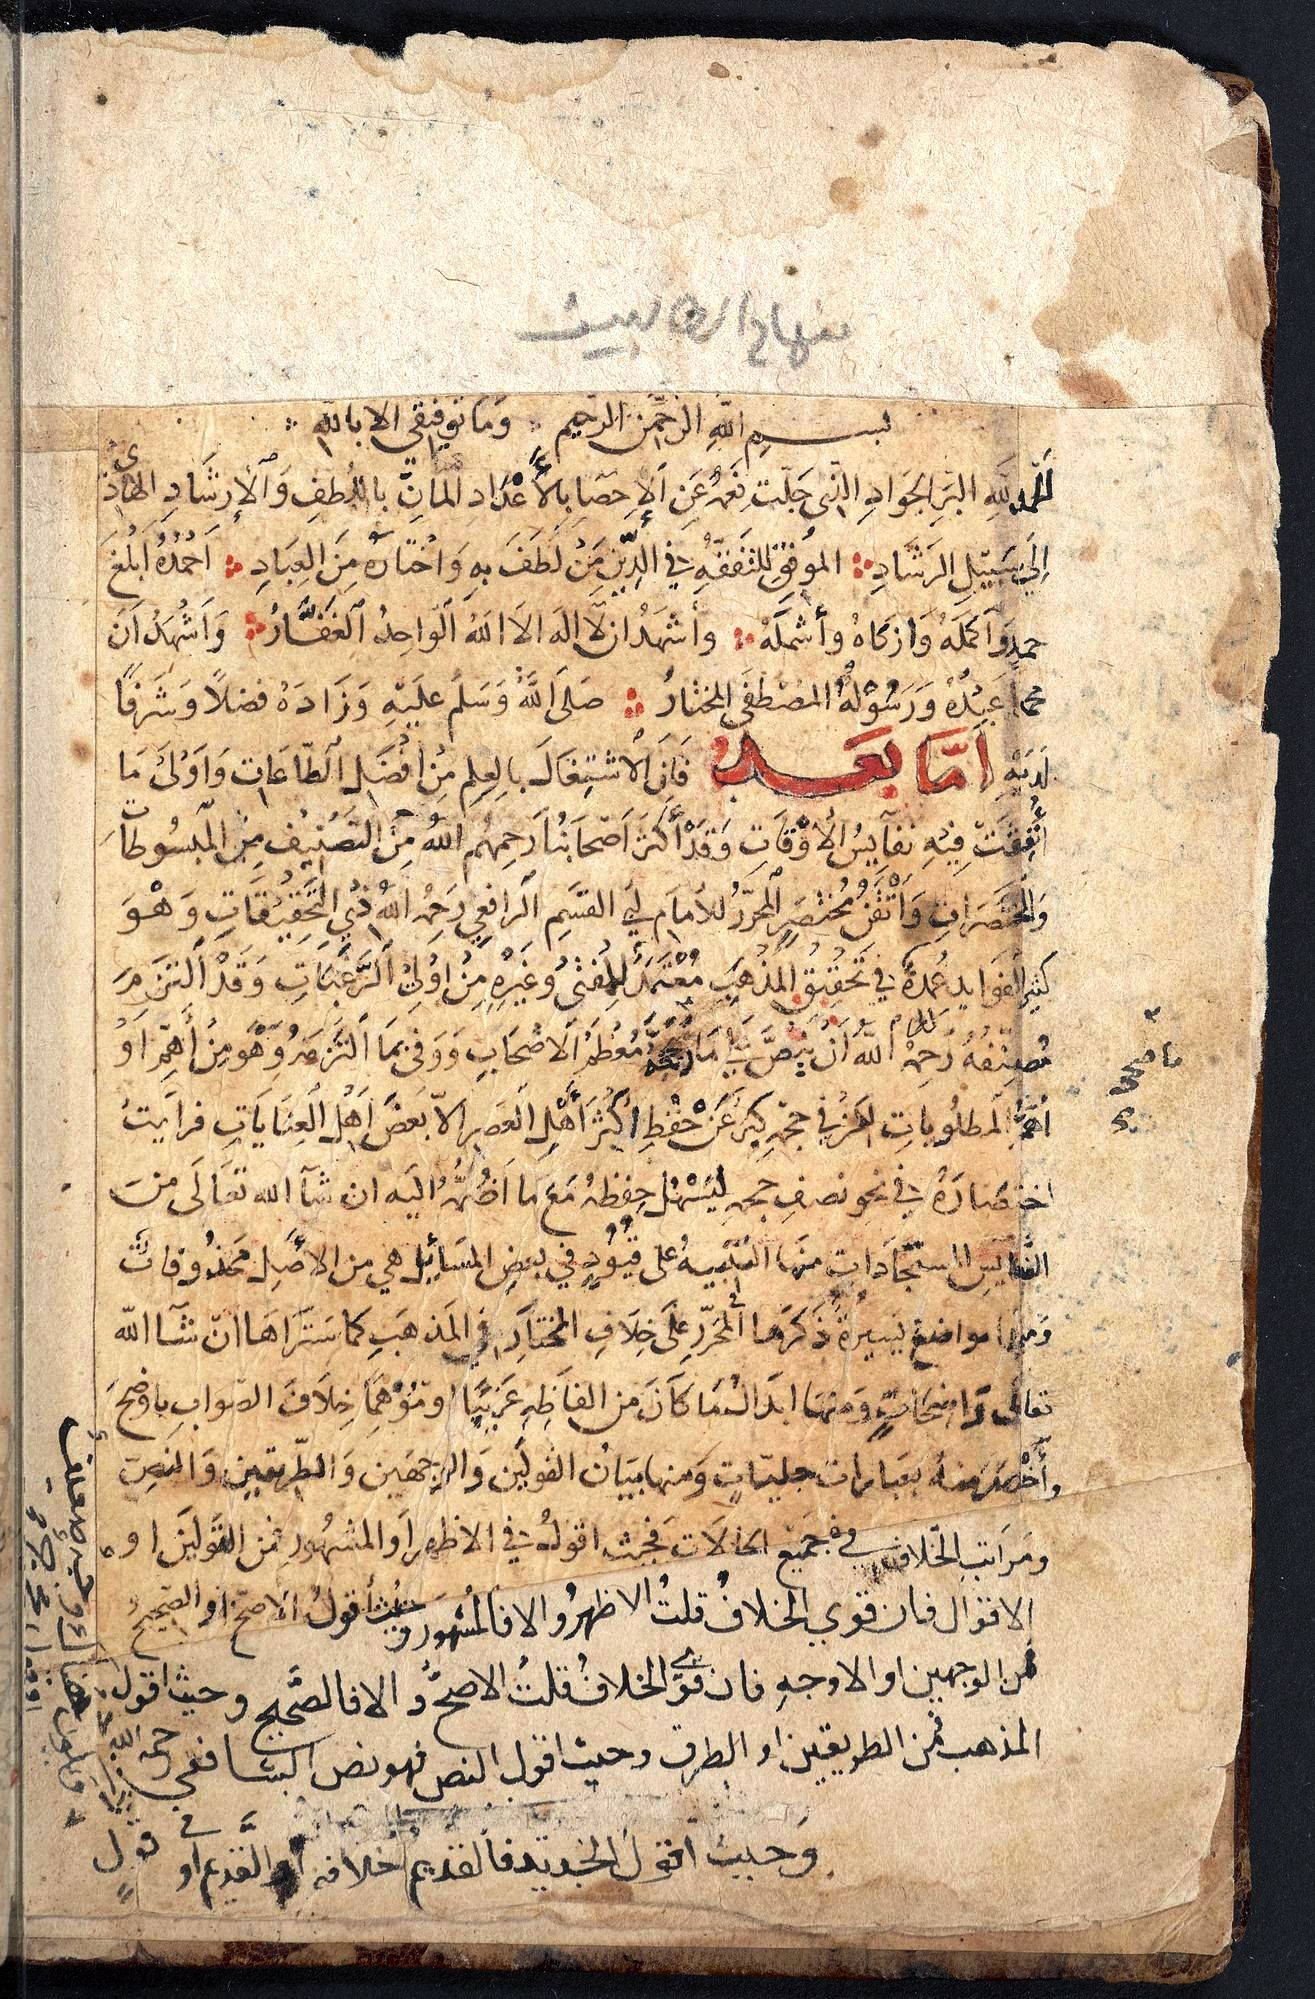 منهاج الطالبين
بسم الله الرحمن الرحيم وما توفيقي الا بالله
الحمد لله البر الجواد الذي جلت نعمه عن الاحصا بالأعداد المان باللطف والإرشاد الهادي
الى سبيل الرشاد الموفق للتفقه في الدين من لطف به واختاره من العباد احمده ابلغ
حمد واكمله وازكاه وأشمله وأشهد ان لا اله الا الله الواحد الغفار وأشهد ان
محمدا عبده ورسوله المصطفى المختار صلى الله وسلم عليه وزاده فضلا وشرفا
لديه اما بعد فان الاشتغال بالعلم من افضل الطاعات واولى ما
أنفقت فيه نفايس الأوقات وقد أكثر اصحابنا رحمهم الله من التصنيف من المبسوطات
والمختصرات وأتقن مختصر المحرر للامام أبي القسم الرافعي رحمه الله ذي التحقيقات وهو
كثير الفوايد عمدة في تحقيق المذهب معتمد للمفتي وغيره من اولي الرغبات وقد التزم
مصنفه رحمه الله ان ينص على ما صححه معظم الاصحاب ووفى بما التزمه وهو من أهم او
أهم المطلوبات لكن في حجمه كبر عن حفظ أكثر أهل العصر الا بعض اهل العنايات فرايت
اختصاره في نحو نصف حجمه ليسهل حفظه مع ما اضمه اليه ان شآ الله تعالى من
النفايس المستجادات منها التنبيه على قيود في بعض المسائل هي من الأصل محذوفات
ومنها مواضع يسيرة ذكرها في المحرر على خلاف المختار في المذهب كما ستراها ان شآ الله
تعالى واضحات ومنها ابدال ما كان من الفاظه غريبا او موهما خلاف الصواب باوضح
وأخصر منه بعبارات جليات ومنها بيان القولين والوجهين والطريقين والنص
ومراتب الخلاف في جميع الحالات فحيث اقول في الاظهر او المشهور فمن القولين او
الاقوال فان قوي الخلاف قلت الاظهر والا فالمشهور وحيث أقول الاصح او الصحيح
فمن الوجهين او الاوجه فان قوي الخلاف قلت الاصح والا فالصحيح وحيث اقول
المذهب فمن الطريقين او الطرق وحيث اقول النص فهو نص الشافعي رحمه الله
وحيث أقول الجديد فالقديم خلافه او القديم او في قول
ما صححه
ويكون هناك وجه ضعيف